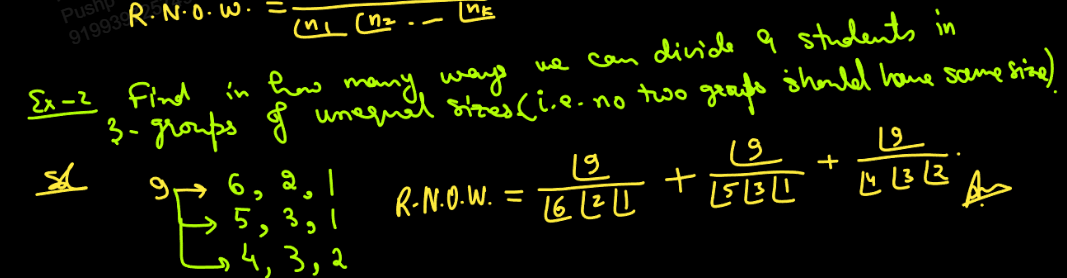 Pushp
R.N.O.W. = ⌊n₁ ⌊n₂ ... ⌊nₖ
919939
Ex-2 Find in how many ways we can divide 9 students in
3-groups of unequal sizes (i.e. no two groups should have same size).
Sol 9 → 6, 2, 1 R.N.O.W. = ⌊9 / ⌊6 ⌊2 ⌊1 + ⌊9 / ⌊5 ⌊3 ⌊1 + ⌊9 / ⌊4 ⌊3 ⌊2 . Ans
→ 5, 3, 1
→ 4, 3, 2